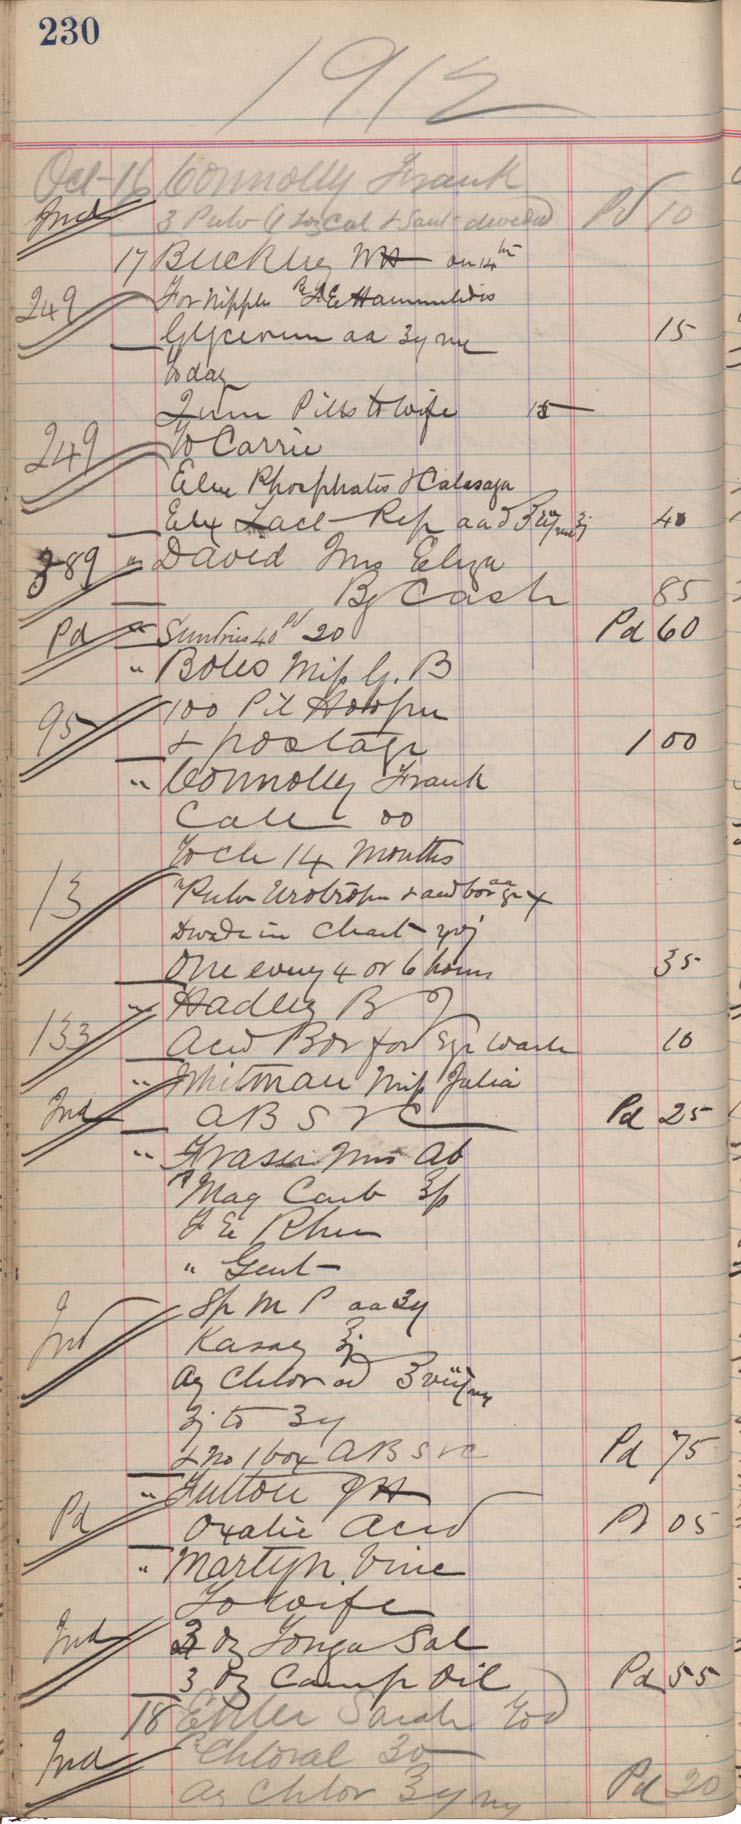 230
1912
Oct 16 Connolly Frank
Ind 3 Pulv Cal & Sant divided Pd 10
17 Buckley WH on 14th
249 For Nipples FE Hammelidis
Glycerine aa 15
Today
Quin Pills to wife 15
249 To Carrie
Elix Phosphates & Calasaya
Elix Lact Pep aa ad 40
389 " David Mrs Eliza
By Cash 85
Pd " Sundries 40 pd 20 Pd 60
" Boles Miss G. B
95 100 Pil Hooper
& postage 1 00
" Connolly Frank
Call 00
To Ch 14 Months
13 Pulv Urotropin & acid bor aa gr
Divide in Chart
One every 4 or 6 hours 35
" Hadley B J
133 Acid Bor for Eye wash 10
" Whitman Miss Julia
Ind A B S & C Pd 25
" Fraser Mrs Ab
Mag Carb
F E Rhei
" Gent
Ind Sp M P aa
Kasag
Aq Chlor ad
to
& No 1 box A B S & C Pd 75
" Fulton J H
Pd Oxalic Acid Pd 05
" Martyn Vine
To wife
Ind 3 oz Tonga Sal
3 oz Camp Oil Pd 55
18 Ehler Sarah
Ind Chloral
Aq Chlor Pd 20